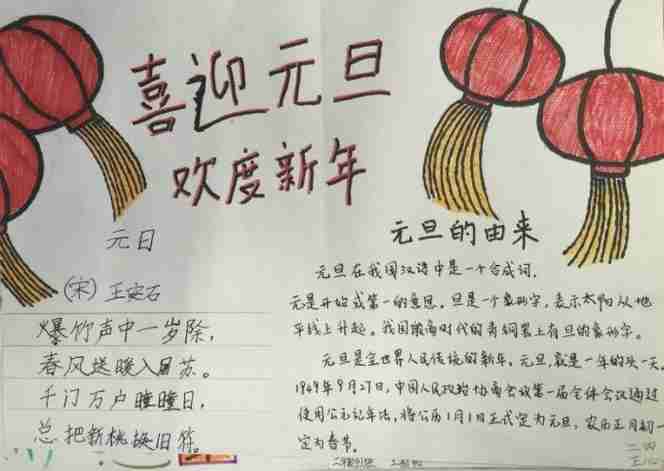 喜迎元旦
欢度新年
元日
(宋) 王安石
爆竹声中一岁除,
春风送暖入屠苏。
千门万户曈曈日,
总把新桃换旧符。
元旦的由来
元旦在我国汉语中是一个合成词,
元是开始或第一的意思。旦是一个象形字,表示太阳从地
平线上升起。我国殷商时代的青铜器上有旦的象形字。
元旦是全世界人民传统的新年。元旦,就是一年的头一天。
1949年9月27日,中国人民政治协商会议第一届全体会议通过
使用公元记年法,将公历1月1日正式定为元旦,农历正月初一
定为春节。